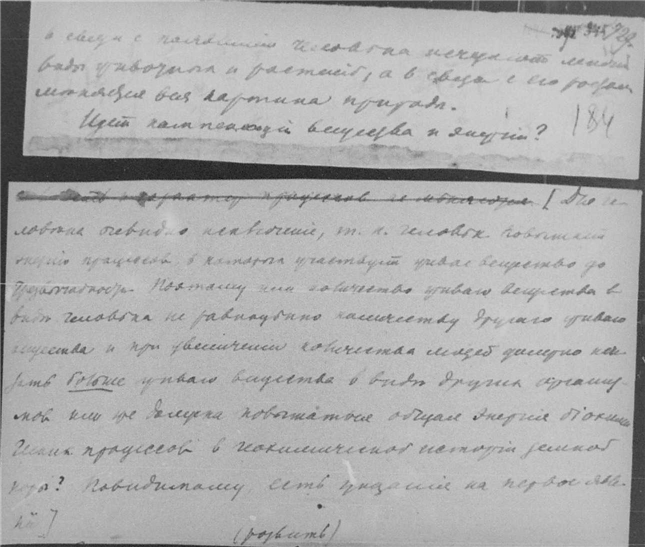 729
в связи с человека исчезают
виды животных и растений, а в связи с его
вся картина природы.
184
Идет компенсация вещества и энергии?
и характер процессов не меняются [Для че-
ловека очевидно исключение, т. к. человек повышает
энергию процессов в которых участвует живое вещество до
Поэтому или количество живого вещества в
виде человека не равноценно количеству другого живого
вещества и при увеличении количества людей должно исче-
зать больше живого вещества в виде других организ-
мов или же должна повышаться общая энергия биохими-
ческих процессов в геохимической истории земной
коры? Повидимому есть указания на первое явле-
ние]
(развить)